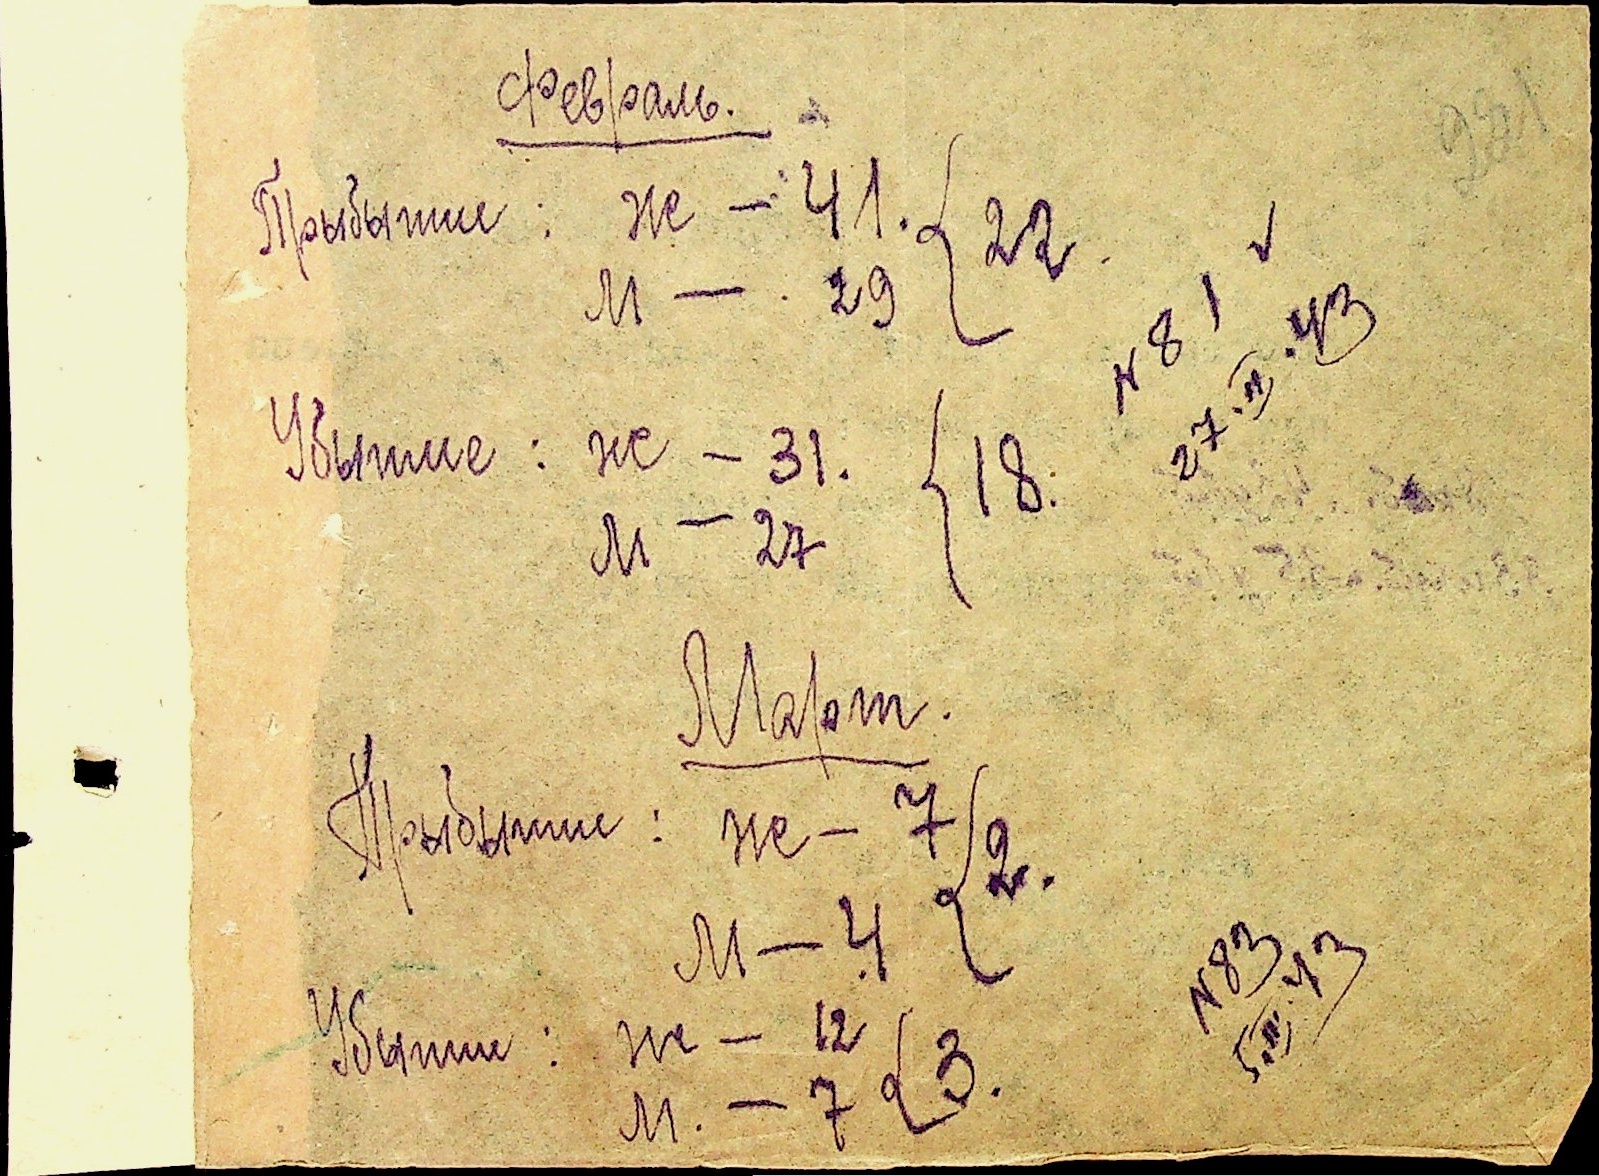 Февраль.
Прибывшие : ж — 41. { 22.
м — 29
№ 81
27.II.43
Убывшие : ж — 31. { 18.
м — 27
Март.
Прибывшие : ж — 7 { 2.
м — 4
№ 83
5.III.43
Убывшие : ж — 12 { 3.
м. — 7